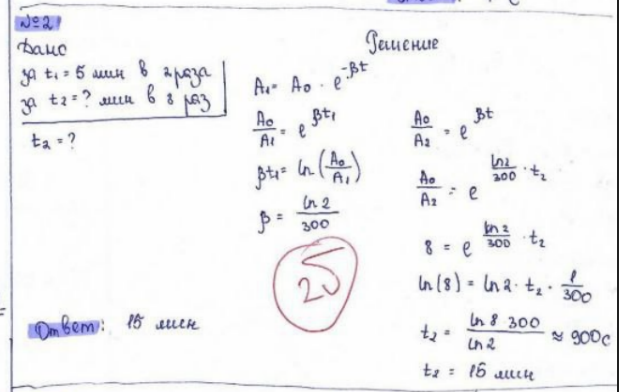 №2
Дано
за t₁ = 5 мин в 2 раза
за t₂ = ? мин в 8 раз
t₂ = ?
Решение
A₁ = A₀ · e^{-βt}
A₀/A₁ = e^{βt₁}
βt₁ = ln(A₀/A₁)
β = ln 2/300
A₀/A₂ = e^{βt}
A₀/A₂ = e^{ln2/300 · t₂}
8 = e^{ln 2/300 · t₂}
ln(8) = ln 2 · t₂ · 1/300
t₂ = ln 8 300/ln 2 ≈ 900 с
t₂ = 15 мин
25
Ответ: 15 мин